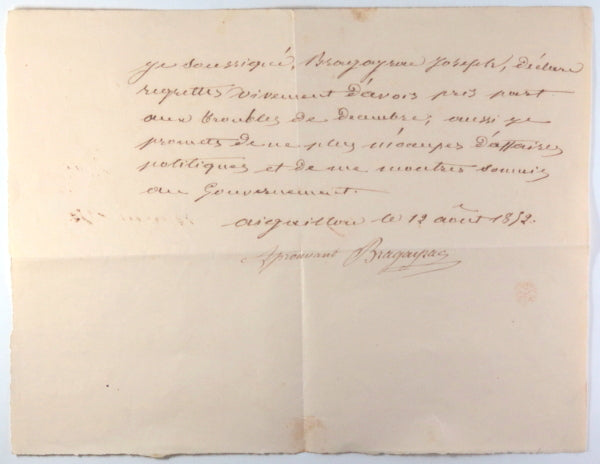 je soussigné, Bragayrac Joseph, déclare
regretter vivement d'avoir pris part
aux troubles de décembre; aussi je
promets de ne plus m'occuper d'affaires
politiques et de me montrer soumis
au Gouvernement.
aiguillon le 12 août 1852.
Aprouvant Bragayrac